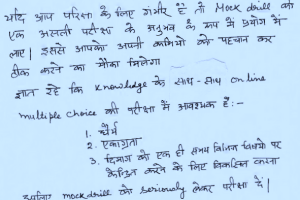 यदि आप परिक्षा के लिए गंभीर हैं तो Mock drill को
एक असली परीक्षा के अनुभव के रूप में प्रयोग में
लाए| इससे आपको अपनी कमियों को पहचान कर
ठीक करने का मौका मिलेगा
ज्ञान रहे कि Knowledge के साथ-साथ online
multiple choice की परीक्षा में आवश्यक हैं:-
1. धैर्य
2. एकाग्रता
3. दिमाग को एक ही समय विभिन्न विषयो पर
केन्द्रित करने के लिए विकसित करना
इसलिए mock drill को seriously लेकर परीक्षा दें|